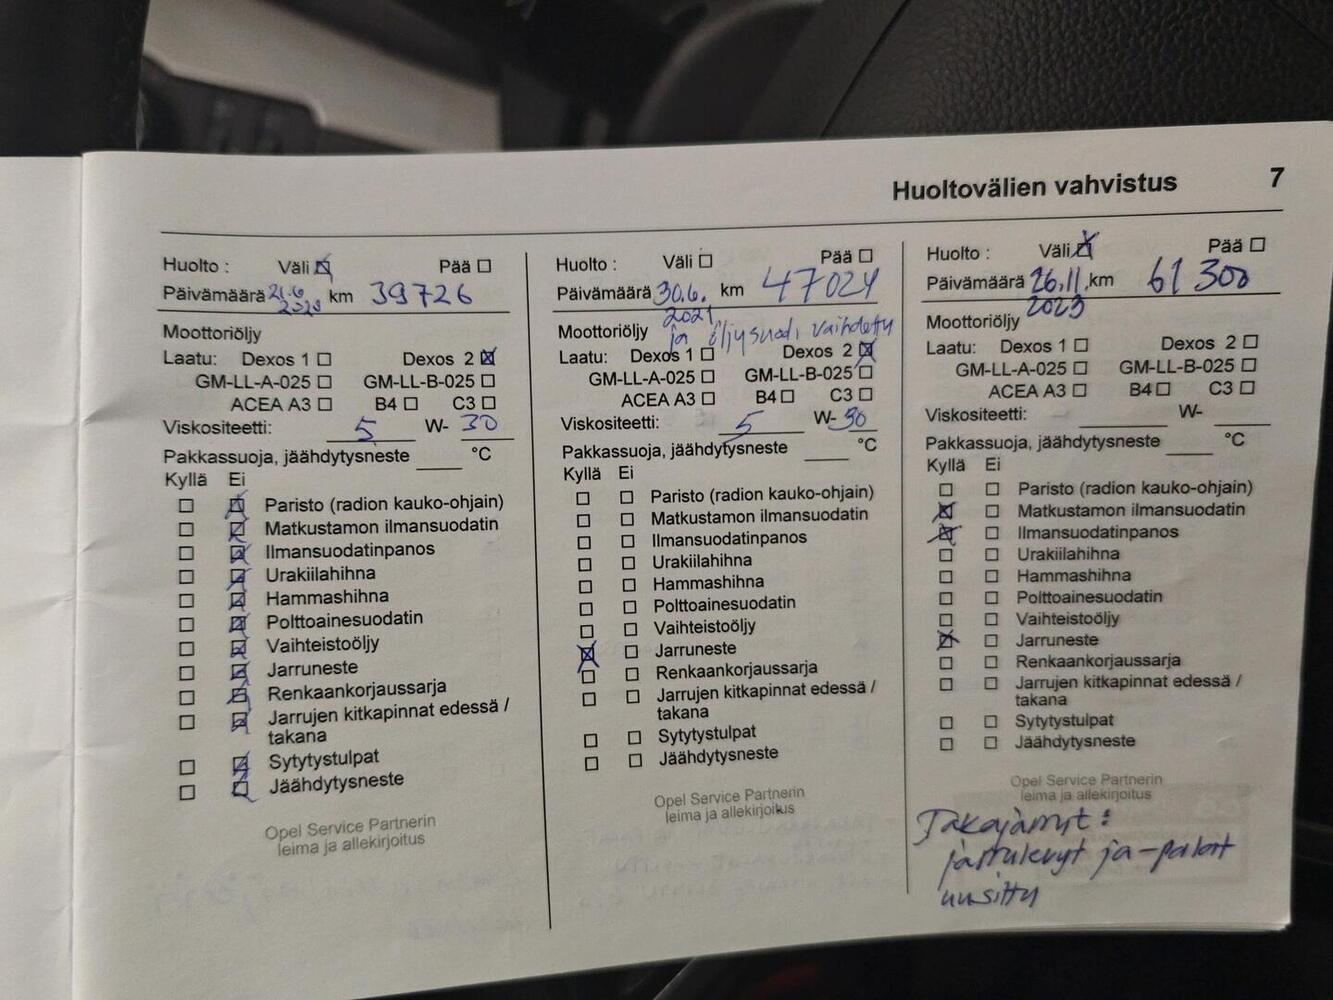 Huoltovälien vahvistus 7
Huolto : Väli ☒ Pää ☐
Päivämäärä 21.6 2020 km 39726
Moottoriöljy
Laatu: Dexos 1 ☐ Dexos 2 ☒
GM-LL-A-025 ☐ GM-LL-B-025 ☐
ACEA A3 ☐ B4 ☐ C3 ☐
Viskositeetti: 5 W- 30
Pakkassuoja, jäähdytysneste ____ °C
Kyllä Ei
☐ ☒ Paristo (radion kauko-ohjain)
☐ ☒ Matkustamon ilmansuodatin
☐ ☒ Ilmansuodatinpanos
☐ ☒ Urakiilahihna
☐ ☒ Hammashihna
☐ ☒ Polttoainesuodatin
☐ ☒ Vaihteistoöljy
☐ ☒ Jarruneste
☐ ☒ Renkaankorjaussarja
☐ ☒ Jarrujen kitkapinnat edessä /
takana
☐ ☒ Sytytystulpat
☐ ☒ Jäähdytysneste
Opel Service Partnerin
leima ja allekirjoitus
Huolto : Väli ☐ Pää ☐
Päivämäärä 30.6. 2021 km 47024
ja öljysuod. vaihdettu
Moottoriöljy
Laatu: Dexos 1 ☐ Dexos 2 ☒
GM-LL-A-025 ☐ GM-LL-B-025 ☐
ACEA A3 ☐ B4 ☐ C3 ☐
Viskositeetti: 5 W- 30
Pakkassuoja, jäähdytysneste ____ °C
Kyllä Ei
☐ ☐ Paristo (radion kauko-ohjain)
☐ ☐ Matkustamon ilmansuodatin
☐ ☐ Ilmansuodatinpanos
☐ ☐ Urakiilahihna
☐ ☐ Hammashihna
☐ ☐ Polttoainesuodatin
☐ ☐ Vaihteistoöljy
☒ ☐ Jarruneste
☐ ☐ Renkaankorjaussarja
☐ ☐ Jarrujen kitkapinnat edessä /
takana
☐ ☐ Sytytystulpat
☐ ☐ Jäähdytysneste
Opel Service Partnerin
leima ja allekirjoitus
Huolto : Väli ☒ Pää ☐
Päivämäärä 26.11. 2023 km 61 300
Moottoriöljy
Laatu: Dexos 1 ☐ Dexos 2 ☐
GM-LL-A-025 ☐ GM-LL-B-025 ☐
ACEA A3 ☐ B4 ☐ C3 ☐
Viskositeetti: ____ W- ____
Pakkassuoja, jäähdytysneste ____ °C
Kyllä Ei
☐ ☐ Paristo (radion kauko-ohjain)
☒ ☐ Matkustamon ilmansuodatin
☒ ☐ Ilmansuodatinpanos
☐ ☐ Urakiilahihna
☐ ☐ Hammashihna
☐ ☐ Polttoainesuodatin
☐ ☐ Vaihteistoöljy
☒ ☐ Jarruneste
☐ ☐ Renkaankorjaussarja
☐ ☐ Jarrujen kitkapinnat edessä /
takana
☐ ☐ Sytytystulpat
☐ ☐ Jäähdytysneste
Opel Service Partnerin
leima ja allekirjoitus
Takajarrut:
jarrulevyt ja -palat
uusittu